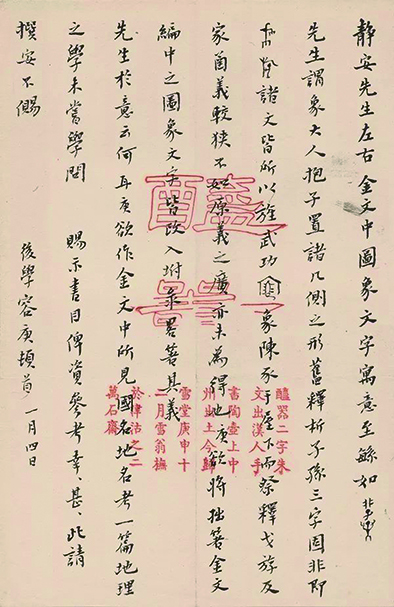 靜安先生左右 金文中圖象文字寓意至緐如
先生謂象大人抱子置諸几側之形舊釋析子孫三字固非即
諸文皆所以旌武功象陳豕于屋下而祭釋戈旂及
家酋義較狹不如原義之廣亦未為得也庚欲將拙箸金文
編中之圖象文字皆改入坿彔畧箸其義
先生於意云何再庚欲作金文中所見國名地名考一篇地理
之學未嘗學問 賜示書目俾資參考幸、甚、此請
撰安不儩
後學容庚頓首 一月四日
醯器
醯器二字朱
文出漢人手
書陶壺上中
州出土今歸
雪堂庚申十
二月雪翁橅
於津沽之二
萬石齋